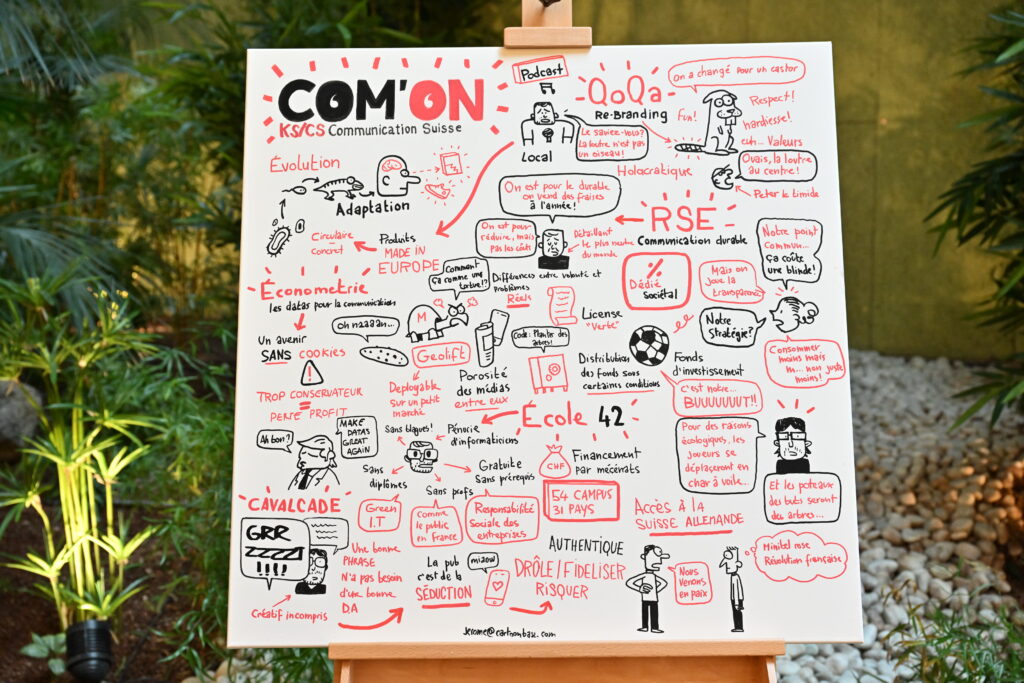 COM'ON
KS/CS Communication Suisse
Podcast
Local
Le saviez-vous?
La loutre n'est pas
un oiseau!
QoQa
Re-Branding
Holocratique
On a changé pour un castor
Fun!
Respect!
hardiesse!
euh... Valeurs
Ouais, la loutre
au centre!
Peter le timide
Évolution
Adaptation
Produits
MADE IN
EUROPE
Circulaire
Concret
On est pour le durable
on vend des fraises
à l'année!
On est pour
réduire, mais
pas les coûts
Détaillant
le plus neutre
du monde
RSE
Communication durable
%
Dédié
Sociétal
Mais on
joue la
transparence
Notre point
commun...
ça coûte
une blinde!
Notre
Stratégie?
Consommer
moins mais
m... non juste
moins!
Économetrie
les datas pour la communication
Un avenir
SANS COOKIES
!
TROP CONSERVATEUR
=
PERTE PROFIT
Comment
ça comme une
tortue!?
M
Oh naaaan...
Geolift
Deployable
Sur un petit
marché
Différences entre volonté et
problèmes
Réels
License
"Verte"
Porosité
des médias
entre eux
Code: Planter des
arbres!
Distribution
des fonds sous
certaines conditions
Fonds
d'investissement
C'est notre...
BUUUUUUUT!!
Pour des raisons
écologiques, les
joueurs se
déplaçeront en
char à voile...
Et les poteaux
des buts seront
des arbres...
École 42
Pénurie
d'informaticiens
Sans blagues!
Sans
diplômes
Sans profs
Gratuite
Sans prérequis
Green
I.T
Comme
le public
en france
Responsabilité
Sociale des
entreprises
CHF
Financement
par mécénats
54 CAMPUS
31 PAYS
Accès à la
SUISSE ALLEMANDE
Nous
venons
en paix
Minitel rose
Révolution française
Ah bon?
MAKE
DATAS
GREAT
AGAIN
CAVALCADE
GRR
!!!!
Créatif incompris
Une bonne
PHRASE
N'a pas besoin
d'une bonne
D.A
La pub
c'est de la
SÉDUCTION
miaow
AUTHENTIQUE
DRÔLE/FIDELISER
RISQUER
jerome@cartoonbase.com